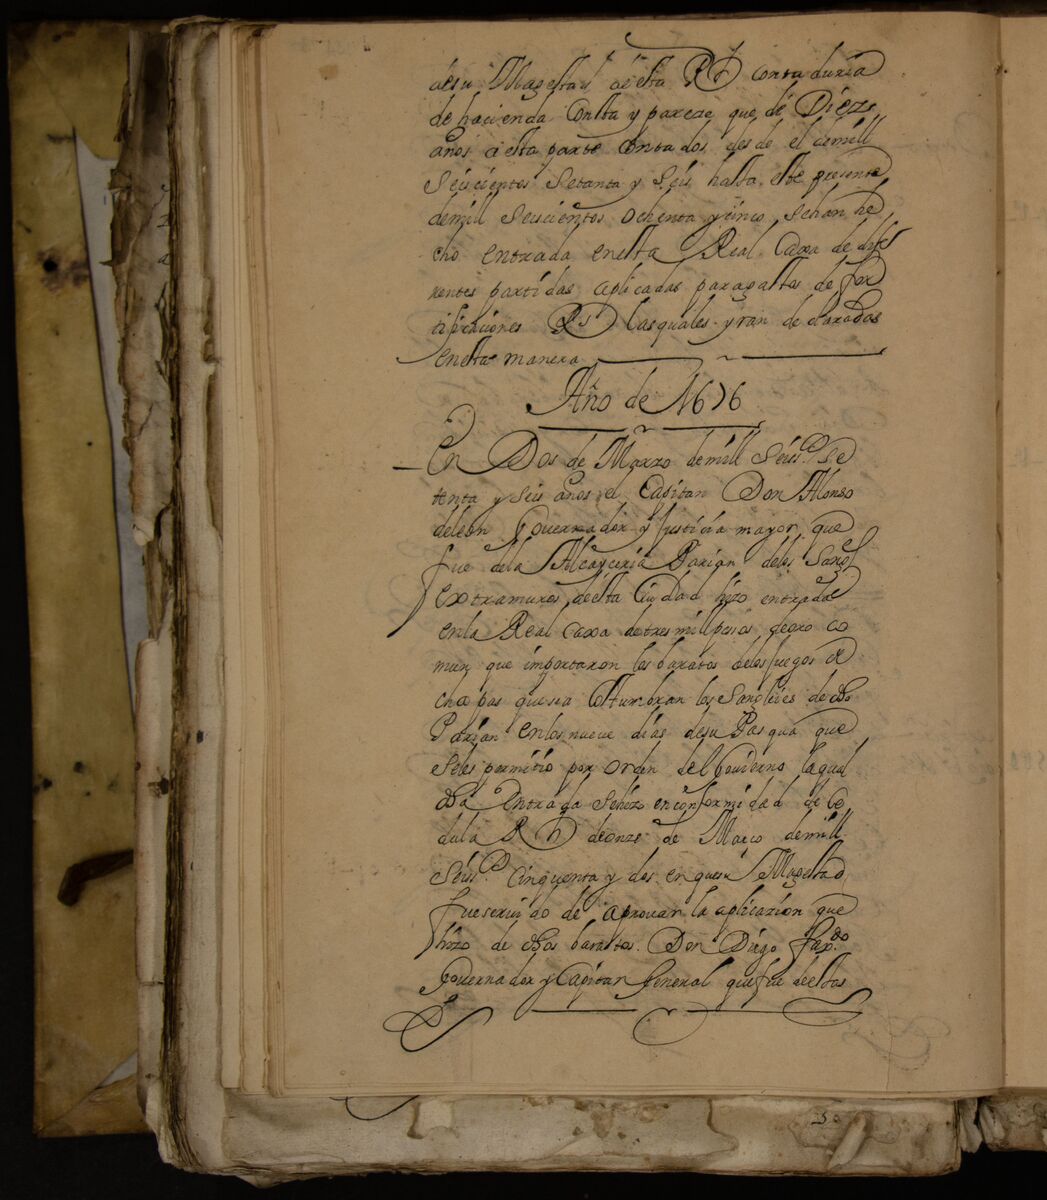 desu Magestad desta Rl contaduria
de hacienda Consta y pareze que de Diez
años aesta parte Contados desde el demill
Seiscientos Setanta y Seis hasta este presente
demill Seiscientos ochenta ycinco, sehan he
cho entrada enesta Real Caxa de dife
rentes partidas aplicadas paragastos de for
tificaciones Rs lasquales yran declaradas
enesta manera
Año de 1676
En Dos de Marzo demill Seisos se
tenta y seis años el Capitan Don Alonso
deleon Governador y Justicia mayor que
fue dela Alcayceria Parian delos Sangs
extramuros desta Ciudad hizo entrada
enla Real Caxa detres mill pesos deoro co
mun que importaron los baratos delos Juegos de
chapas quesea Costumbran los Sangleies de dho
Parian enlos nueve dias desu Pasqua que
seles permitio por orden del Govierno laqual
dha entrada sehizo enconformidad de Ce
dula Rl deonze de Março demill
Seisos cinquenta y dos enquesu Magestad
fueseruido de aprouar la aplicazion que
hizo de dhos baratos Don Diego faxdo
Gouernador y Capitan General quefue destas